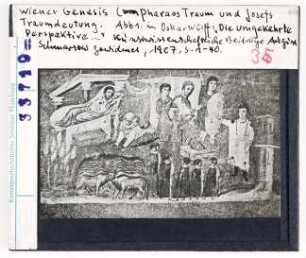 Wiener Genesis Pharaos Traum und Josefs
Traumdeutung. Abb1. in Oskar Wulff, „Die umgekehrte
Perspektive" Kunstwissenschaftliche Beiträge August
Schmarsow gewidmet, 1907, S. 1-40.
35
33710
Kunstgeschichtliches Seminar Hamburg